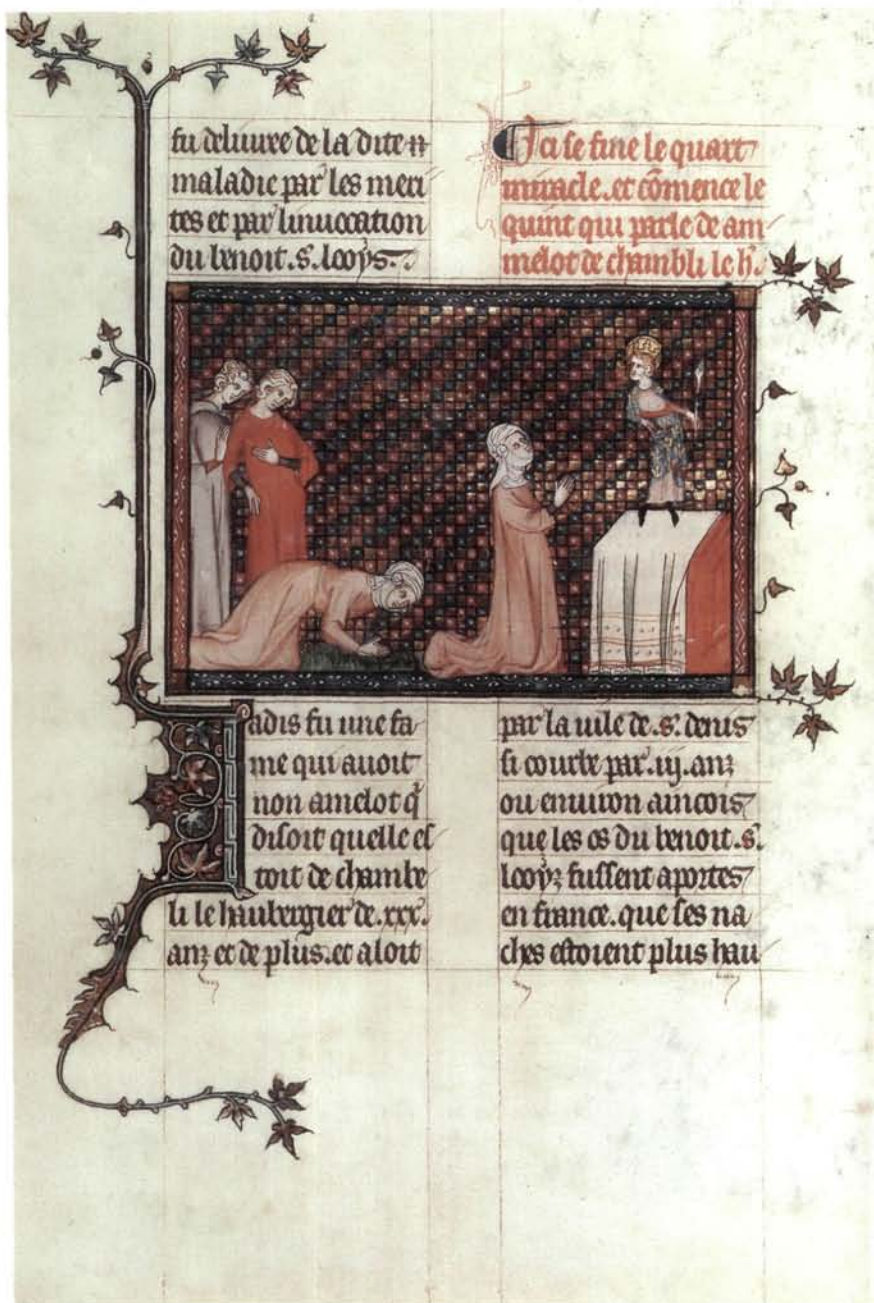 fu deliure de la dite
maladie par les meri
tes et par linuocation
du benoit .s. looys.
Ici se fine le quart
miracle. et cõmence le
quint qui parle de am
melot de chambli le h.
Iadis fu une fa
me qui auoit
non amelot q̃
disoit quelle es
toit de chambe
li le haubergier de .xxx.
anz et de plus. et aloit
par la uile de .s. denis
si courbe par .iij. anz
ou enuiron aincois
que les os du benoit .s.
looyz fussent aportes
en france. que ses na
ches estoient plus hau